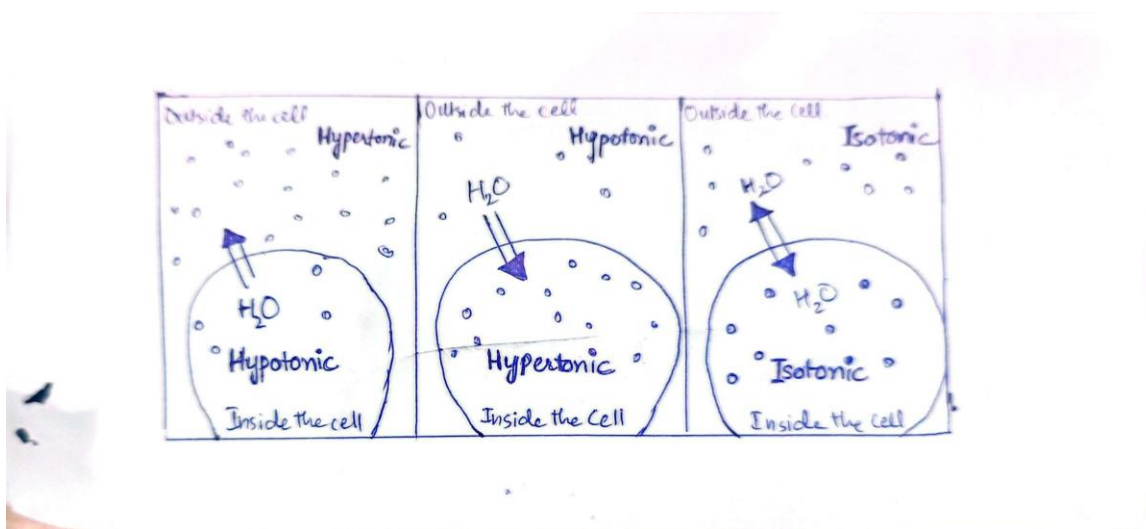 Outside the cell
Hypertonic
H₂O
Hypotonic
Inside the cell
Outside the cell
Hypotonic
H₂O
Hypertonic
Inside the Cell
Outside the Cell
Isotonic
H₂O
H₂O
Isotonic
Inside the Cell